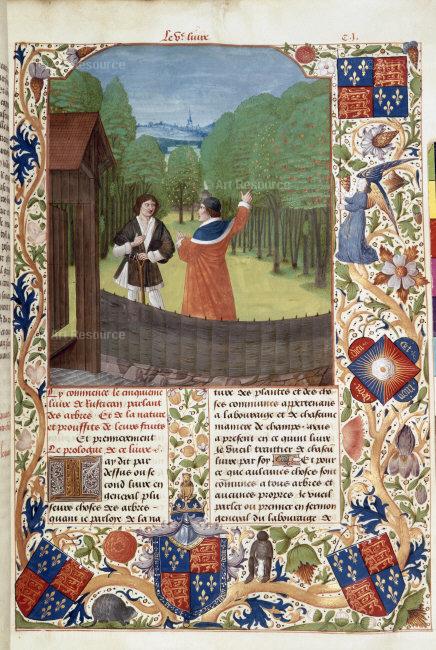 Le Ve livre
C. I.
Art Resource
Art Resource
Art Resource
Cy commence le cinquieme
livre de Rustican parlant
des arbres Et de la nature
et prouffits de leurs fruits
Et premierement
Le prologue de ce livre
Jay dit par
dessus ou se
cond livre en
general plu
seurs choses des arbres
quant je parloye de la na
ture des plantes et des cho
ses communes appertenans
a labourage et de chascune
maniere de champs
a present en ce quint livre
je vueil traittier de chascu
livre par soy Et pour
ce que aulcunes choses sont
communes a tous arbres et
aucunes propres je vueil
parler ou premier en sermon
general du labourage de